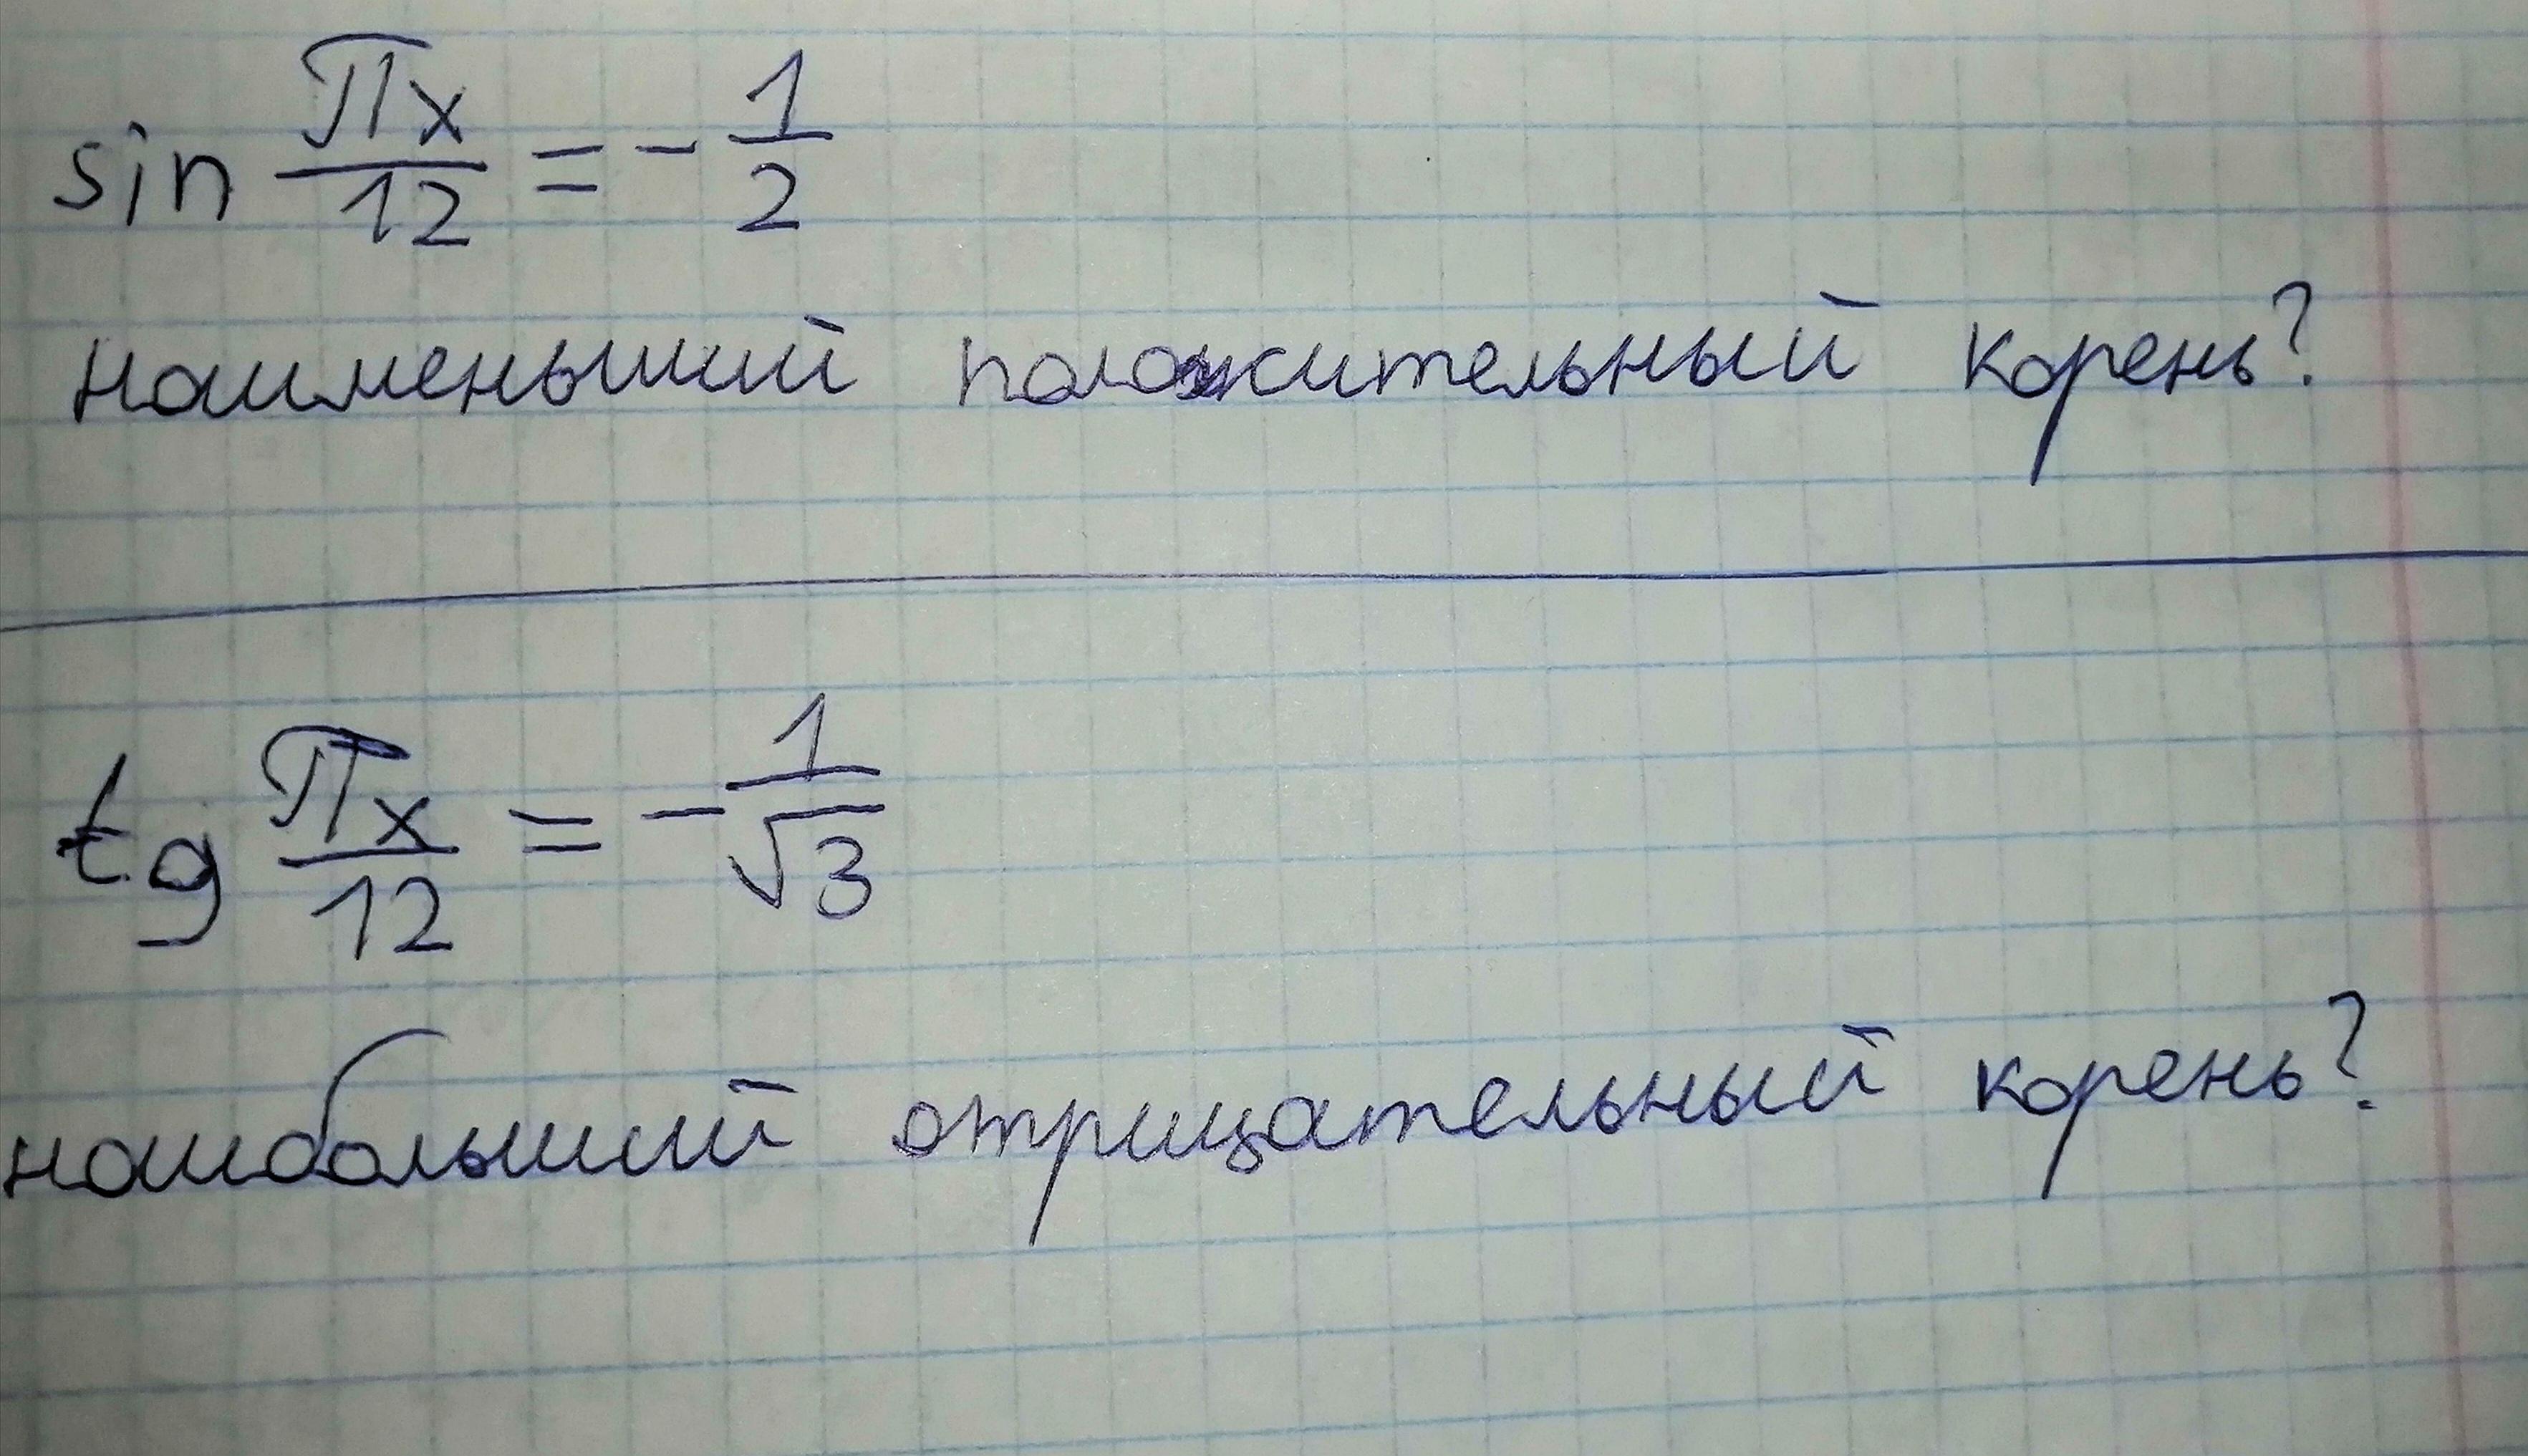 sin πx/12 = - 1/2
наименьший положительный корень?
tg πx/12 = - 1/√3
наибольший отрицательный корень?